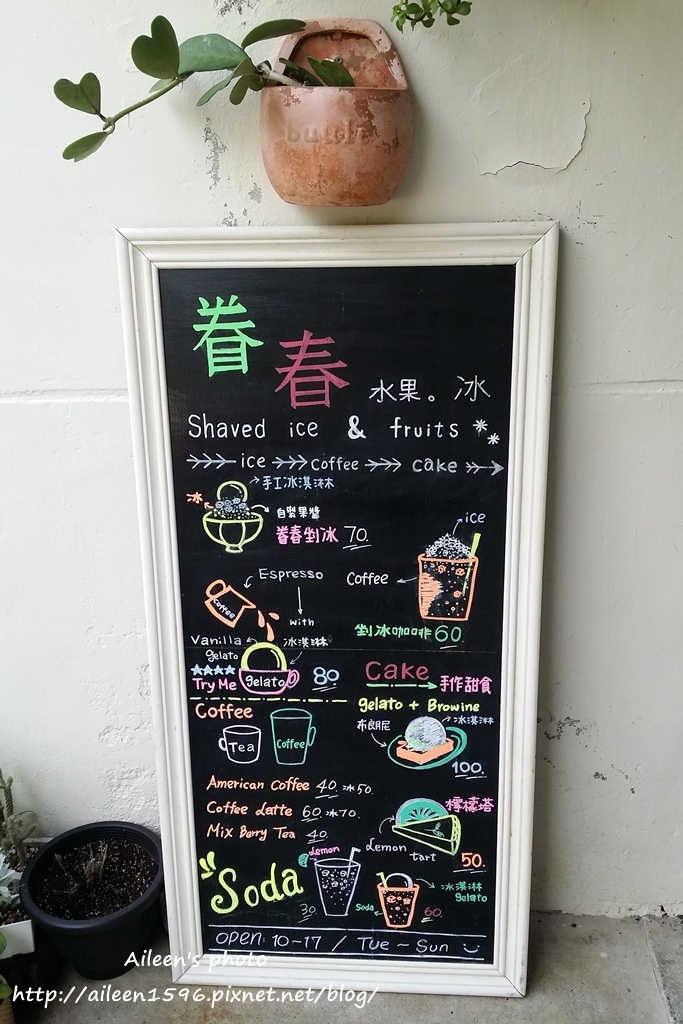 builda
眷春 水果。冰
Shaved ice & fruits
ice coffee cake
手工冰淇淋
冰
自製果醬
眷春剉冰 70.
ice
Coffee
剉冰咖啡 60.
Espresso
coffee
with
Vanilla gelato
冰淇淋
Try Me
gelato
80
Cake
手作甜食
gelato + Browine
布朗尼
冰淇淋
100.
Coffee
Tea
Coffee
American Coffee 40. 冰50.
Coffee Latte 60 冰70.
Mix Berry Tea 40.
檸檬塔
Lemon tart
50.
Soda
Lemon
30.
Soda
冰淇淋
gelato
60.
open: 10~17 / Tue ~ Sun
Aileen's photo
http://aileen1596.pixnet.net/blog/